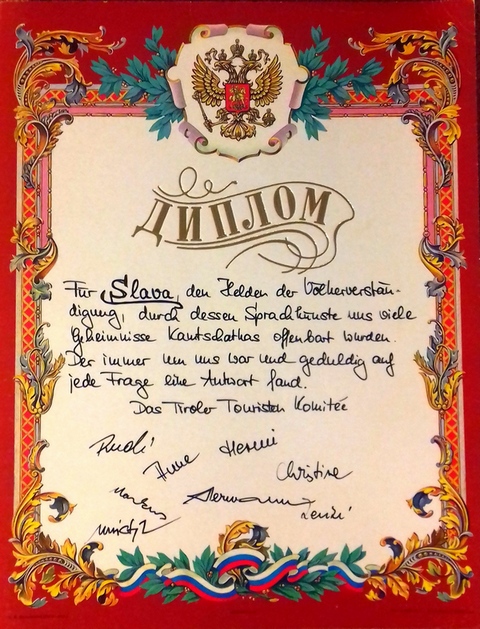 ДИПЛОМ
Für Slava, den Helden der Völkerverstän-
digung, durch dessen Sprachkünste uns viele
Geheimnisse Kamtschatkas offenbart wurden.
Der immer um uns war und geduldig auf
jede Frage eine Antwort fand.
Das Tiroler Touristen Komitée
Rudi
Anne Hermi
Christine
Markus Hermann